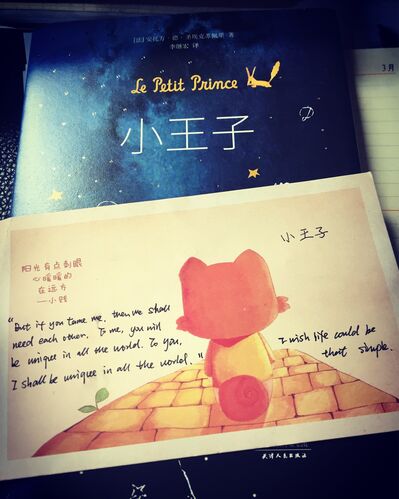 [法] 安托万·德·圣埃克苏佩里 著
李继宏 译
Le Petit Prince
小王子
3月
小王子
阳光有点刺眼
心暖暖的
在远方
一小贱
"But if you tame me, then we shall
need each other. To me, you will
be unique in all the world. To you,
I shall be unique in all the world."
I wish life could be
that simple.
天津人民出版社